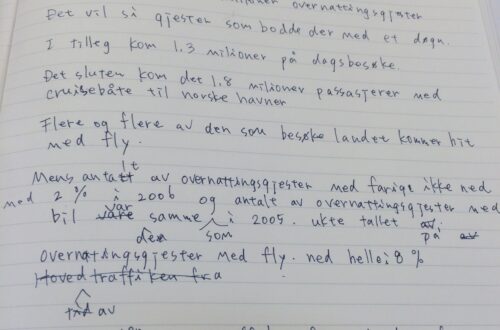 overnattingsgjester
Det vil si gjester som bodde der med et døgn.
I tilleg kom 1,3 milioner på dagsbesøke.
Det sluten kom det 1,8 milioner passasjerer med
cruisebåte til norske havner
Flere og flere av den som besøke landet kommer hit
med fly.
lt
Mens antatt av overnattingsgjester med farige ikke ned
med 2 % i 2006 og antalt av overnattingsgjester med
var
bil våre samme i 2005. ukte tallet av
den som på av
Overnattingsgjester med fly. ned hele i 8 %
Hoved traffiken fra
av